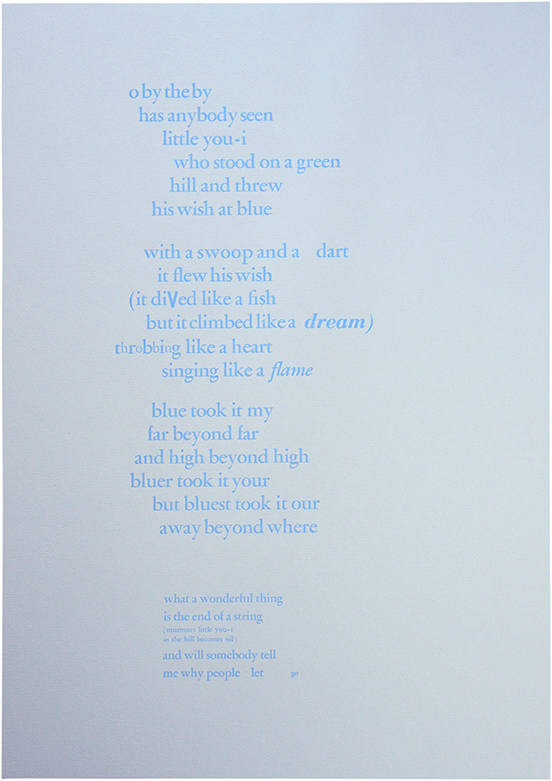 o by the by
has anybody seen
little you-i
who stood on a green
hill and threw
his wish at blue
with a swoop and a dart
it flew his wish
(it diVed like a fish
but it climbed like a dream)
throbbing like a heart
singing like a flame
blue took it my
far beyond far
and high beyond high
bluer took it your
but bluest took it our
away beyond where
what a wonderful thing
is the end of a string
(murmurs little you-i
as the hill becomes nil)
and will somebody tell
me why people let go